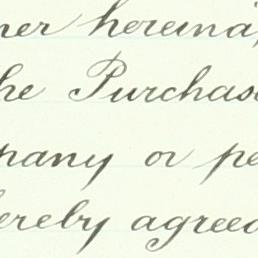 ner hereina
he Purchas
pany or pe
ereby agreed